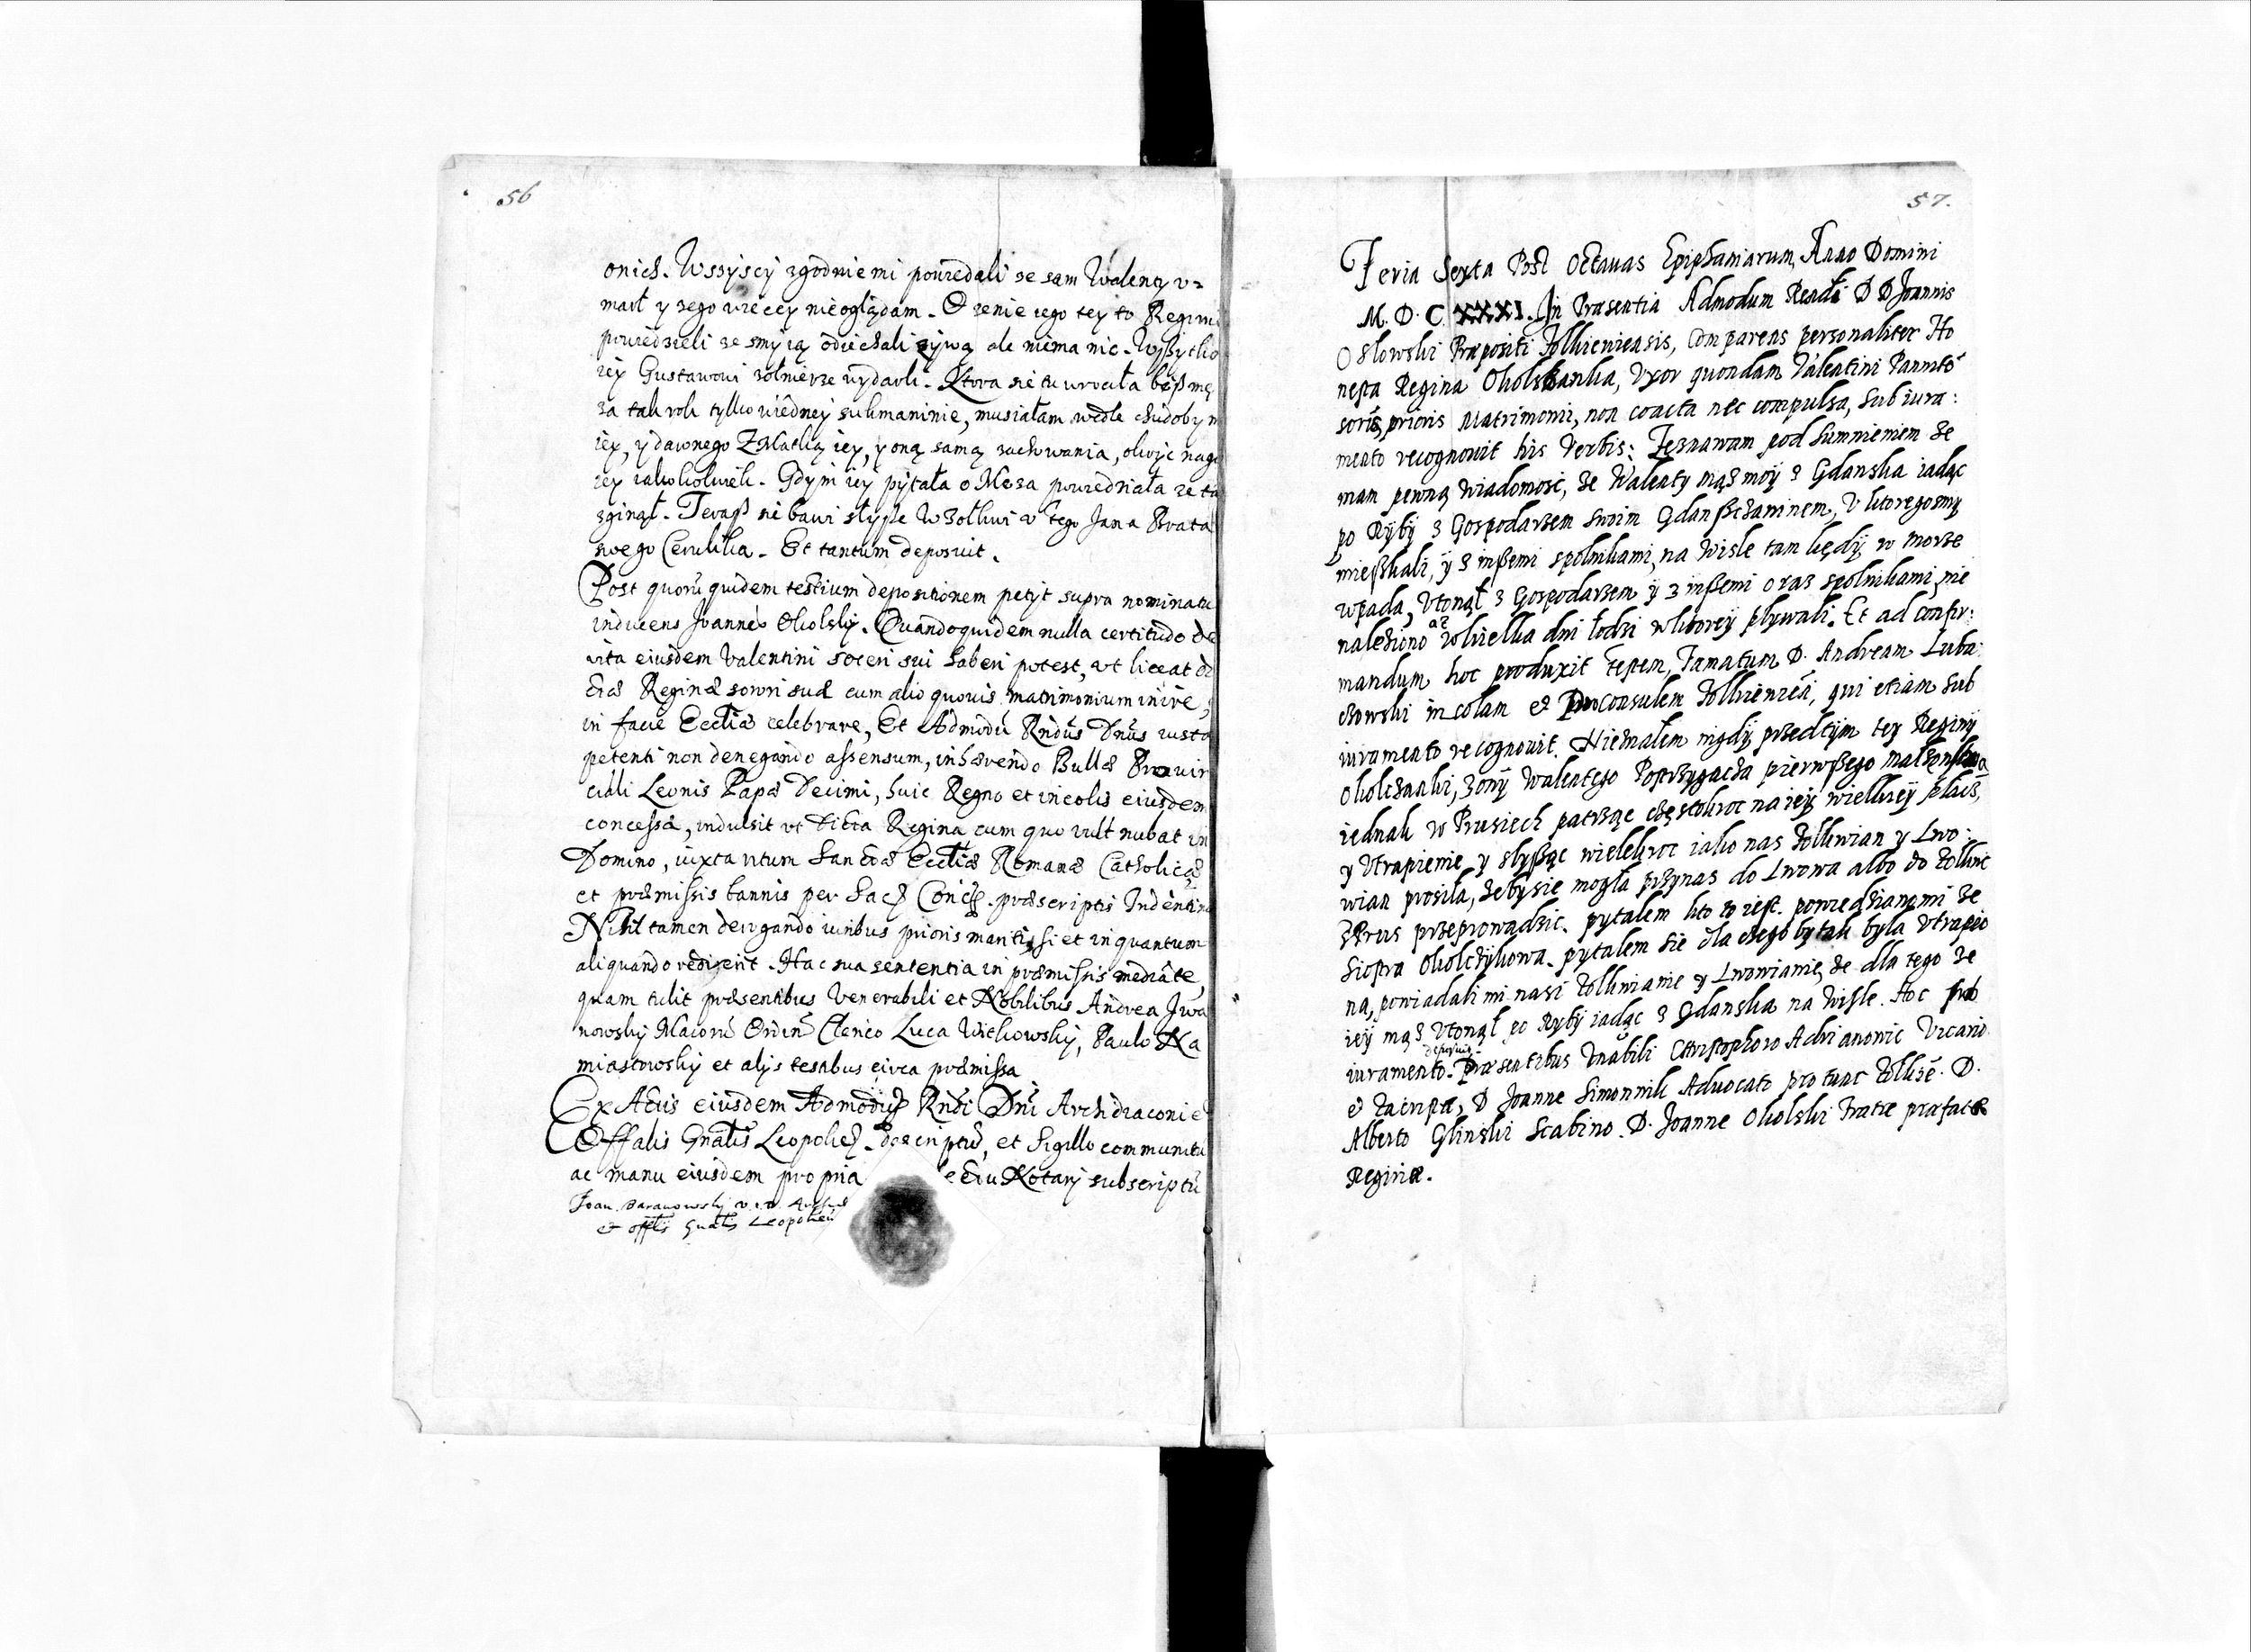 56
onich. Wssyscy zgodnie mi powiedali ze sam Walenty v=
marł y zego więcey nieoglądam. O zenie iego tey to Regini
powiedzieli ze smy ią odiechali zywą ale nima nic. Wszytko
iey Gustawowi zołnierze wydarli. Ktora sie tu wrociła bez mę
za tak rok tylko wiedney sukmaninie, musiałam wedle chudoby m
iey, y dawnego Z Matką iey, y oną samą zachwania, okryć nago
iey iakokolwiek. Gdym iey pytała o Męza powiedziała ze ta
zginął. Teraß sie bawi słyße w Zołkwi v tego Jana Brata
swego Cerulika. Et tantum deposuit.
Post quorũ quidem testium depositionem petijt supra nominatu
inducens Joannes Okolsky. Quandoquidem nulla certitudo de
vita eiusdem Valentini soceri sui haberi potest, vt liceat di
ctæ Reginæ sorori suæ cum alio quovis matrimonium inire,
in facie Eccłiæ celebrare, Et Admodũ Rndũs Dnũs iusta
petenti non denegando assensum, inhærendo Bullæ Provin
ciali Leonis Papæ Decimi, huic Regno et incolis eiusdem
concessæ, indulsit vt dicta Regina cum quo vult nubat in
Domino, iuxta ritum Sanctæ Eccłiæ Romanæ Catholicæ
et præmissis bannis per Sac Conc præscriptis Indentino
Nihil tamen derogando iuribus prioris mariti, si et in quantum
aliquando redierit. Hac sua sententia in præmissis mediãte,
quam tulit præsentibus Venerabili et Nobilibus Andrea Jwa
nowsky Maiorũ Ordinũ Clerico Luca Witkowsky, Paulo Na
miastowsky et alijs testibus circa præmissa
Ex Actis eiusdem Admodũ Rndi Dni Archidiaconi et
Offalis Gnãlis Leopolień descriptũ, et Sigillo communitũ
ac manu eiusdem propria Notarij subscriptũ
Joan. Baranowsky
et offlis Gnalis Leopolien
57.
Feria Sexta Post Octauas Epiphaniarum, Anno Domini
M. D. C. XXXI. In Præsentia Admodum Rendi D D Joannis
Osłowski Præpositi Zolkieniensis, Comparens personaliter Ho
nesta Regina Okolskanka, Vxor quondam Valentini Pannito
soris, prioris Matrimonii, non coacta nec compulsa, sub iura:
mento recognouit his Verbis: Zeznawam pod Sumnieniem że
mam pewną wiadomość, że Walenty mąż móy z Gdanska iadąc
po Ryby z Gospodarzem swoim Gdanszczaninem, V ktoregosmy
mieszkali, y z inßemi spolnikami, na Wisle tam kędy w morze
wpada, Vtonął z Gospodarzem y z inßemi oraz spolnikami, nie
naleziono aż wkielka dni łodzi wktorey pływali. Et ad confir:
mandum hoc produxit testem, Famatum D. Andream Luba
czowski incolam et Proconsulem Zolkieniẽ, qui etiam sub
iuramento recognouit. Nieznałem nigdy przedtym tey Reginy
Okolczanki, żony Walentego Postrzygacza pierwßego małżonstwa
iednak w Prusiech patrząc częstokroc na iey wielkiey płacz,
y Vtrapienie y słyßąc wielekroc iako nas Zolkwian y Lwo:
wian prosiła, żeby sie mogła przynas do Lwowa albo do Zolkwie
z Prus przeprowadzic. pytałem kto to iest. powiedzianomi że
Siostra Okolczykowa. pytałem sie dla czego by tak była Vtrapio
na, powiadali mi nasi Zolkwianie y Lwowianie, że dla tego że
iey mąż Vtonął po Ryby iadąc z Gdanska na Wisle. Hoc sub
iuramento deposuit. Præsentibus Vnãbili Christophoro Adrianowic Vicario
D Joanne Simonnik Aduocato protunc Zolkiẽ. D.
Alberto Glinski Scabino. D. Joanne Okolski Fratre præfatæ
Reginæ.